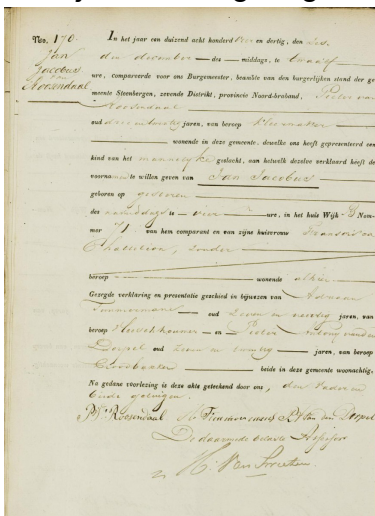 No. 170.
Jan
Jacobus
Roosendaal
In het jaar een duizend acht honderd en dertig, den zes
den december — des — middags, te twaalf
ure, compareerde voor ons Burgemeester, beambte van den burgerlijken stand der ge-
meente Steenbergen, zevende Distrikt, provincie Noord-braband, Pieter van
Roosendaal
oud jaren, van beroep Kleermaker
wonende in deze gemeente, dewelke ons heeft gepresenteerd een
kind van het mannelijke geslacht, aan hetwelk dezelve verklaard heeft de
voornamen te willen geven van Jan Jacobus
geboren op gisteren
des namiddags te vier ure, in het huis Wijk B Num-
mer 71 van hem comparant en van zijne huisvrouw
zonder
beroep wonende alhier
Gezegde verklaring en presentatie geschied in bijwezen van Adriaan
Timmermans oud zeven en veertig jaren, van
beroep en Pieter van den
Dorpel oud zeven en twintig jaren, van beroep
Broodbakker beide in deze gemeente woonachtig.
Na gedane voorlezing is deze akte geteekend door ons, den vader en
beide getuigen.
Roosendaal A Timmermans P. van den Dorpel
De daartoe Assessor
H. Van